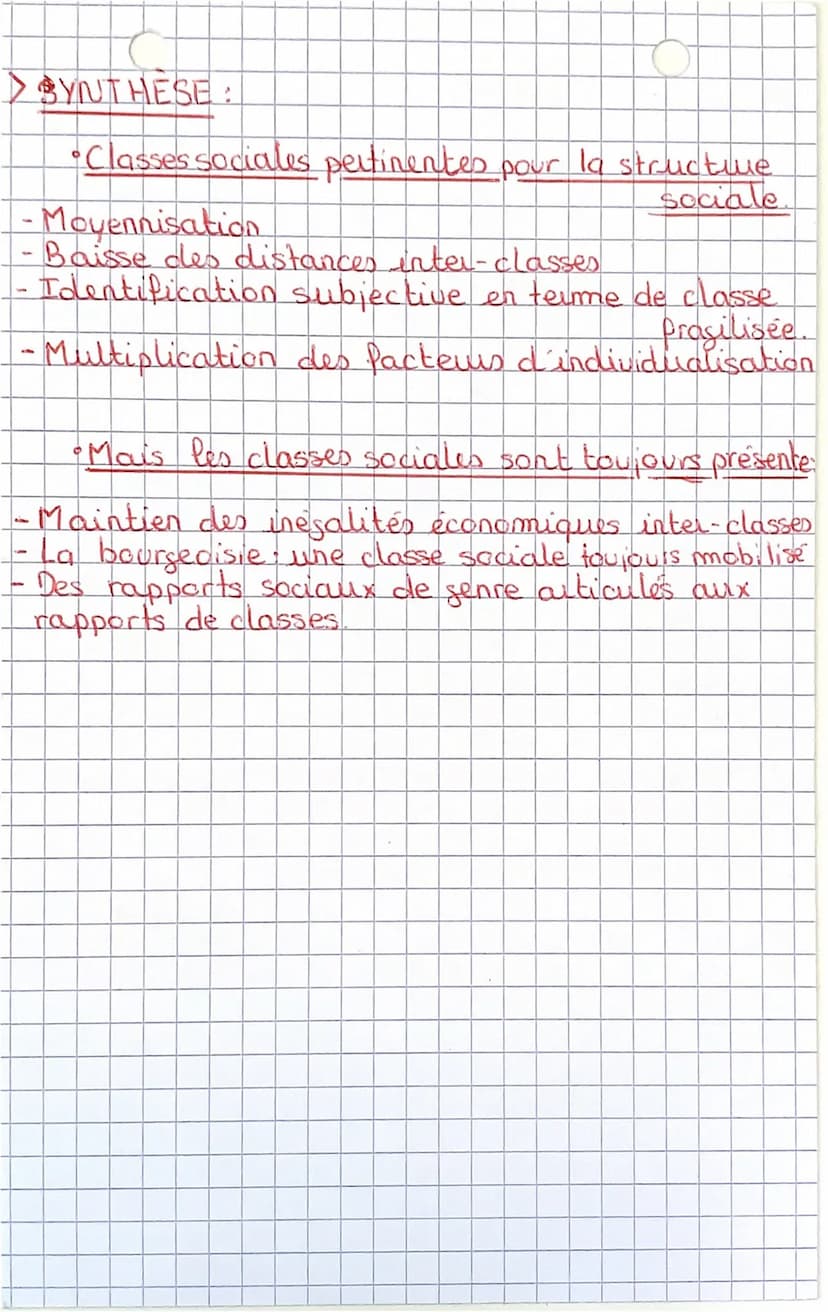 > SYNTHÈSE :
• Classes sociales pertinentes pour la structure
sociale.
- Moyennisation
- Baisse des distances inter-classes
- Identification subjective en terme de classe
fragilisée.
- Multiplication des facteurs d'individualisation
• Mais les classes sociales sont toujours présente
- Maintien des inégalités économiques inter-classes
- La bourgeoisie : une classe sociale toujours mobilisé
- Des rapports sociaux de genre articulés aux
rapports de classes.